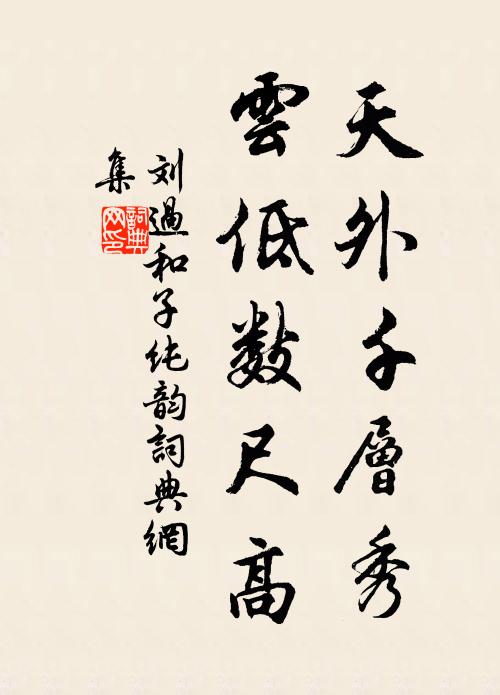 天外千層秀
雲低数尺高
刘過和子纯韵詞典網
集
詞典网印